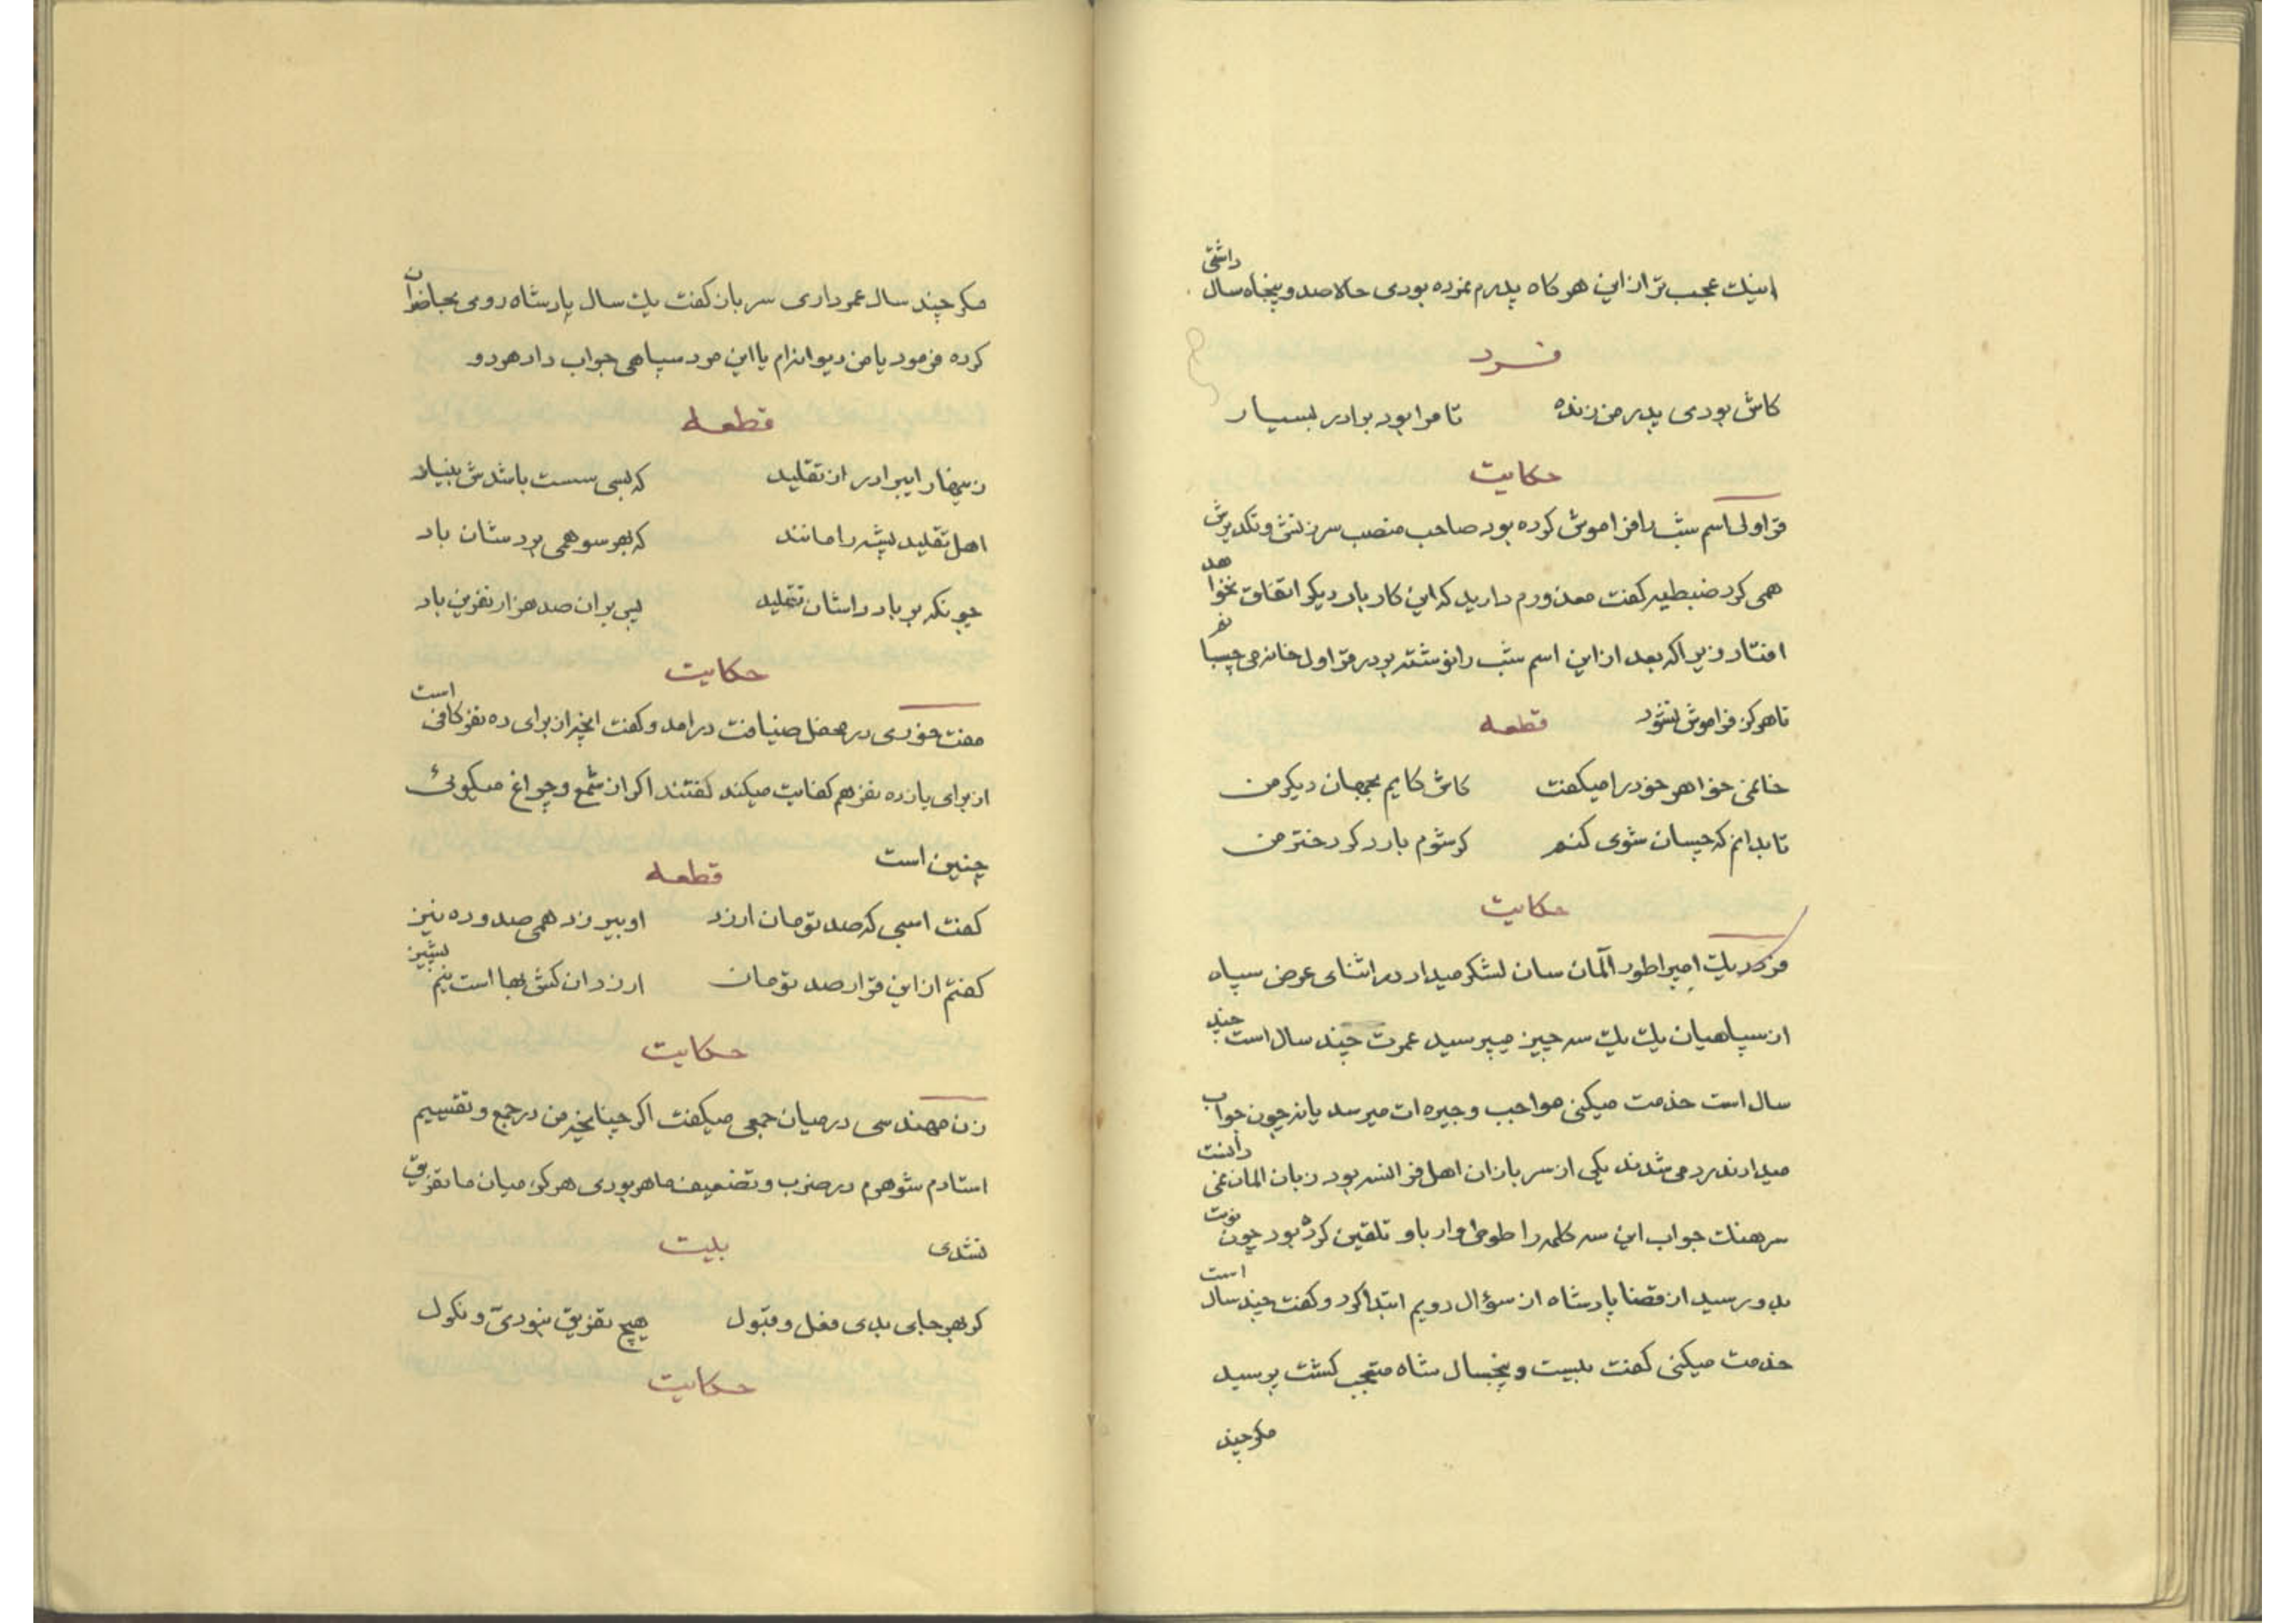 اینک عجب‌تر از این هرکاه پدرم نمرده بودی حالا صد و پنجاه سال داشتی
فرد
کاش بودی پدر من زنده تا مرا بود برادر بسیار
حکایت
قراولی اسم شب را فراموش کرده بود صاحب منصب سرزنش و تکدیرش
همی کرد ضبطیه کفت معذورم دارید که این کار بار دیکر اتفاق نخواهد
افتاد زیرا که بعد از این اسم شب را نوشته بر در قراول خانه می چسبا
تا هرکز فراموش نشود قطعه
خانمی خواهر خود را میکفت کاش کایم بجهان دیکر من
تا بدانم که چسان شوی کنم کر شوم بارد کر دختر من
حکایت
فردریک امپراطور آلمان سان لشکر میداد در اثنای عرض سپاه
از سپاهیان یک یک سه چیز میپرسید عمرت چند سال است چند
سال است خدمت میکنی مواجب و جیره ات میرسد یا نه چون جواب
میدادند رد می شدند یکی از سربازان اهل فرانسه بود زبان المان نمی دانست
سرهنک جواب این سه کلمه را طوطی وار باو تلقین کرده بود چون نوبت
بدو رسید از قضا پادشاه از سؤال دویم ابتدا کرد و کفت چند سال است
خدمت میکنی کفت بیست و پنجسال شاه متعجب کشت پرسید
مکر چند
مکر چند سال عمر داری سرباز کفت یک سال پادشاه روی بحاضران
کرده فرمود یا من دیوانه‌ام یا این مرد سپاهی جواب داد هر دو
قطعه
زینهار ایبرادر از تقلید که بسی سست باشدش بنیاد
اهل تقلید پشه را مانند که بهر سو همی بردشان باد
چونکه بر باد داشان تقلید پس بر ان صد هزار نفرین باد
حکایت
مفت خوری در محفل ضیافت درامد و کفت انچه از برای ده نفر کافی است
از برای یازده نفر هم کفایت میکند کفتند اکر از شمع و چراغ میکوئی
چنین است قطعه
کفت اسبی که صد تومان ارزد او بیرزد همی صد و ده نیز
کفتم از این قرار صد تومان ارزد ان کش بها است نیم پشیز
حکایت
زن مهندسی در میان جمعی میکفت اکر چنانچه من در جمع و تقسیم
استادم شوهرم در ضرب و تضعیف ماهر بودی هرکز میان ما تفریق
نشدی بیت
کر بهر جای بدی فعل و قبول هیچ تفریق نبودی و نکول
حکایت